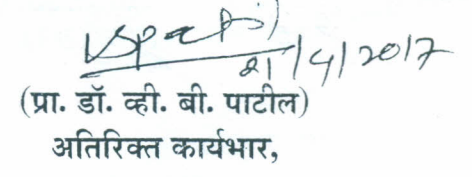 21/4/2017
(प्रा. डॉ. व्ही. बी. पाटील)
अतिरिक्त कार्यभार,